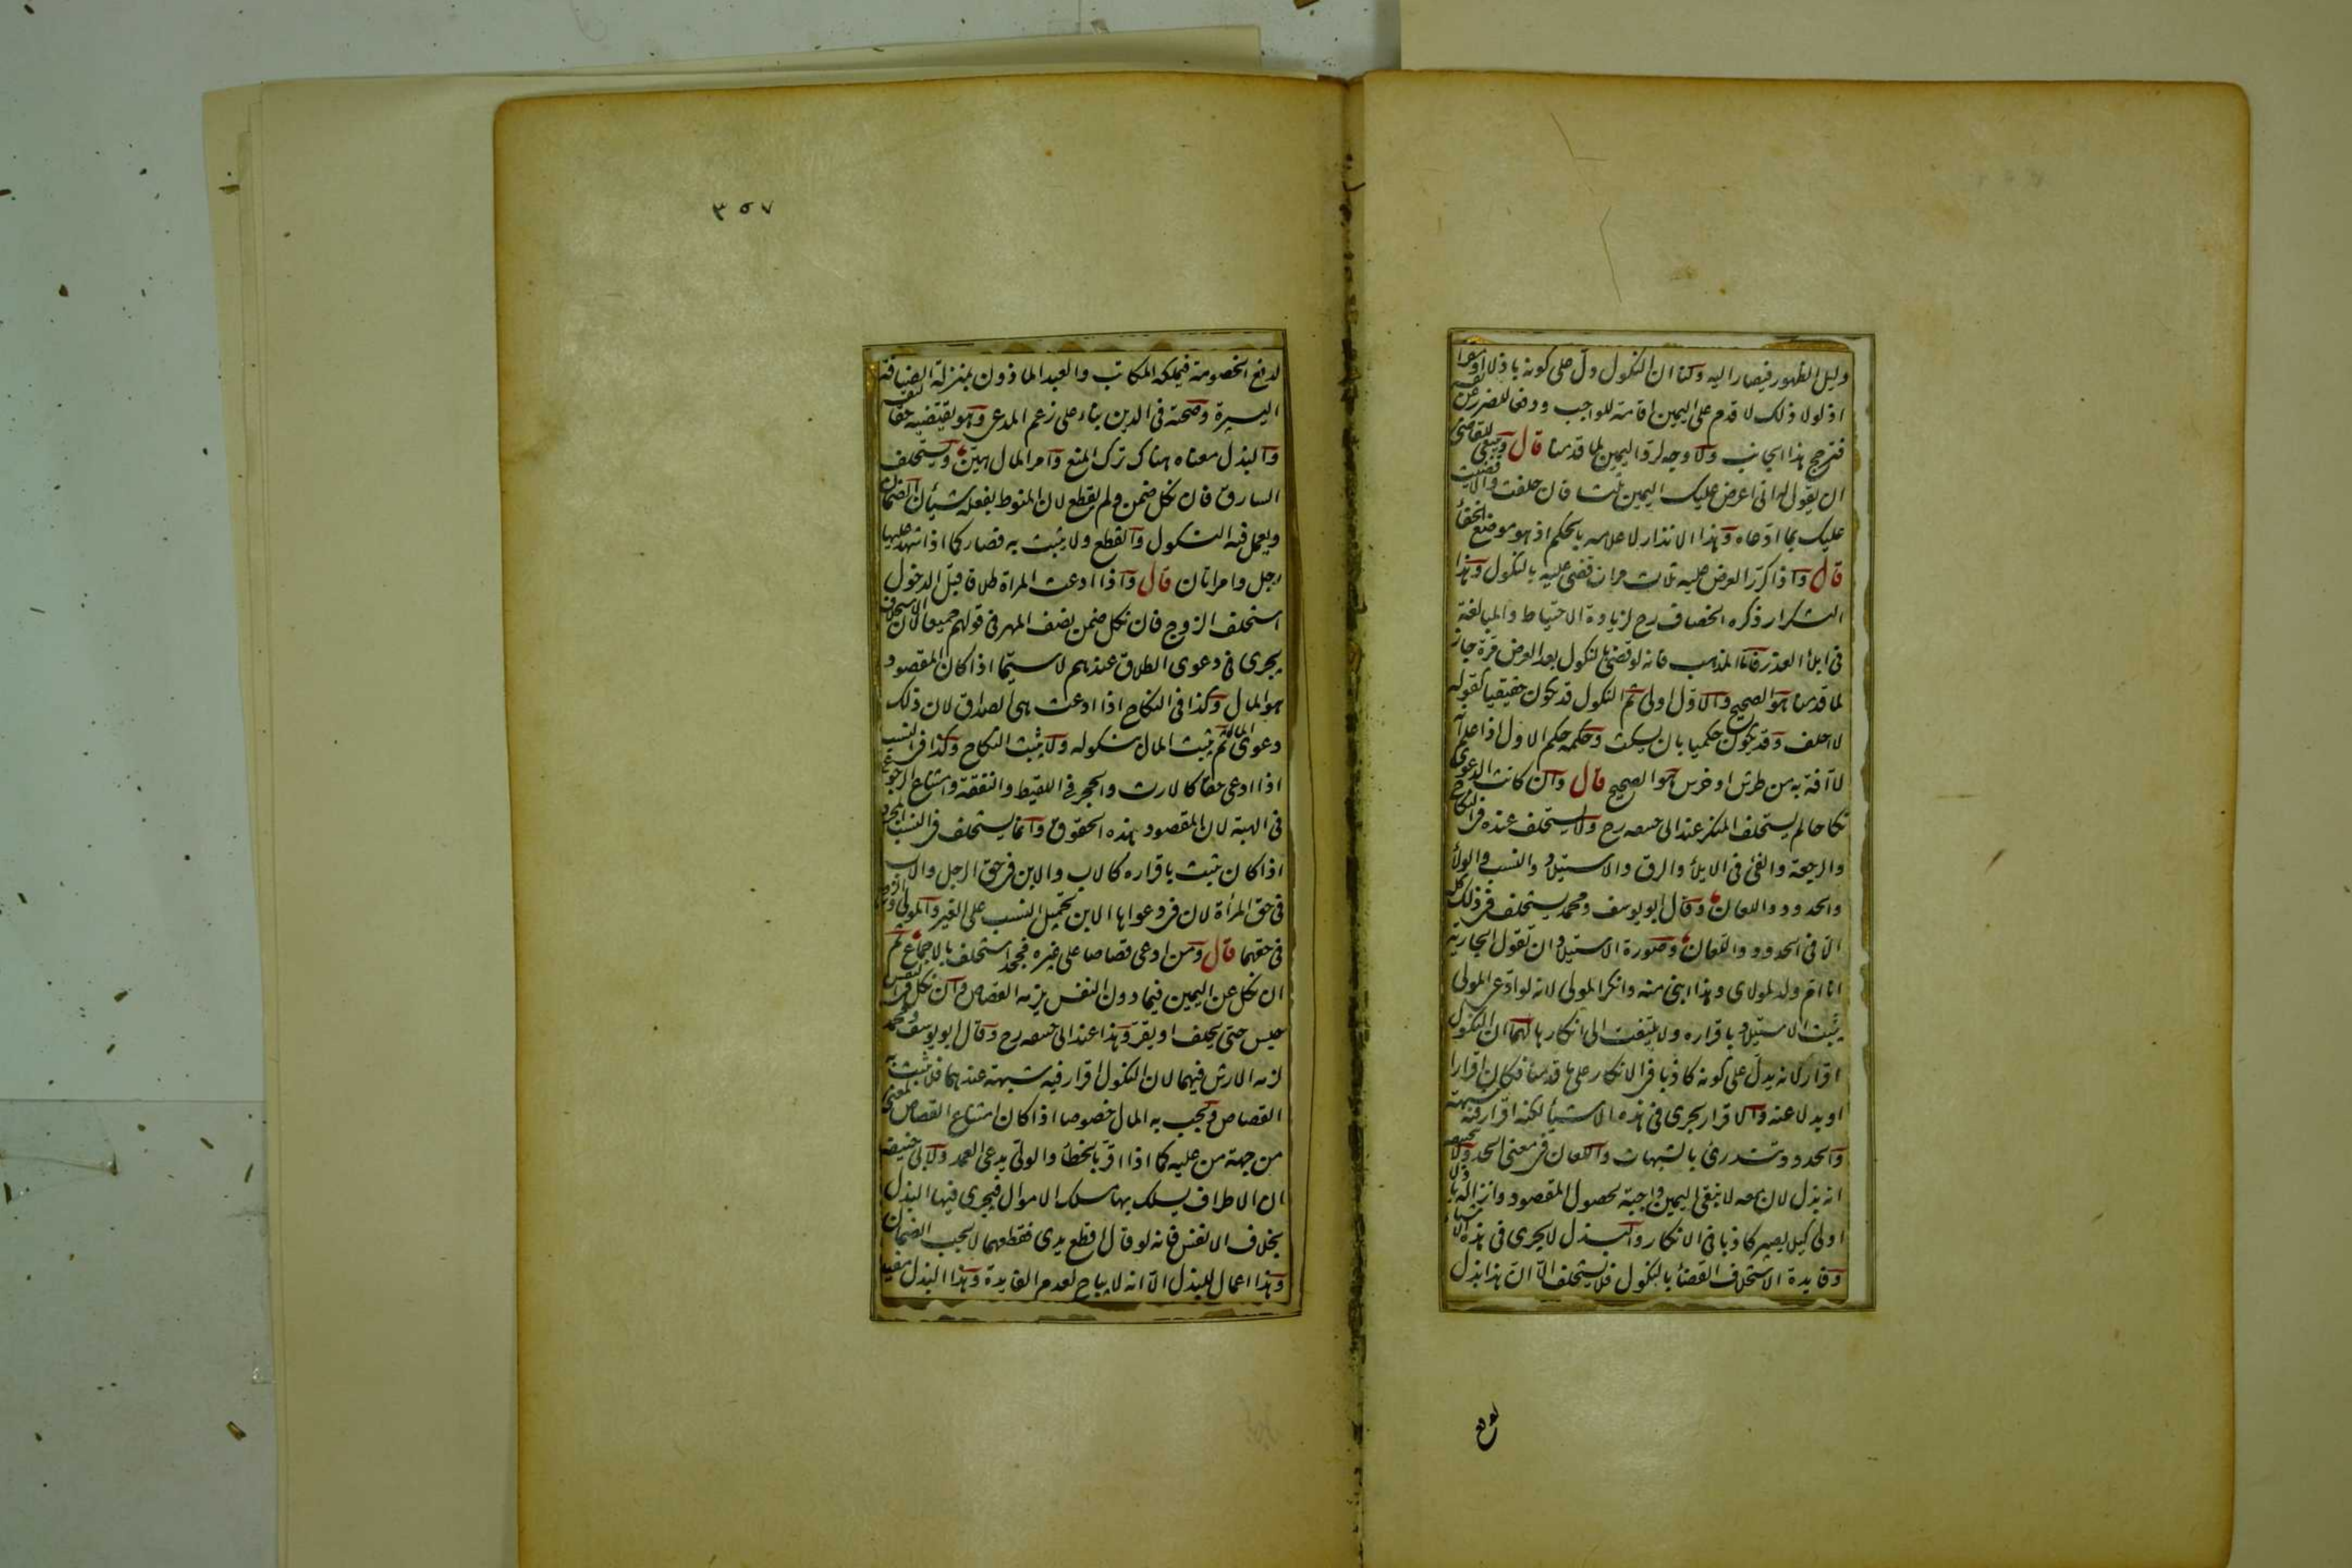 دليل الظهور فيصار اليه ولنا ان النكول دل على كونه باذلا او مقرا
اذ لولا ذلك لاقدم على اليمين اقامة للواجب ودفعا للضرر عن نفسه
فترجح هذا الجانب ولا وجه لرد اليمين لما قدمنا قال وينبغى للقاضى
ان يقول له انى اعرض عليك اليمين ثلثا فان حلفت والا قضيت
عليك بما ادعاه وهذا الانذار لاعلامه بالحكم اذ هو موضع الخفأ
قال واذا كرر العرض عليه ثلاث مرات قضى عليه بالنكول وهذا
التكرار ذكره الخصاف رح لزيادة الاحتياط والمبالغة
فى ابلأ العذر فاما المذهب فانه لو قضى بالنكول بعد العرض مرة جاز
لما قدمنا هو الصحيح والاول اولى ثم النكول قد يكون حقيقيا كقوله
لا احلف وقد يكون حكميا بان يسكت وحكمه حكم الاول اذا علم انه
لا آفة به من طرش او خرس هو الصحيح قال وان كانت الدعوى
نكاحا لم يستحلف المنكر عند ابى حنيفه رح ولا يستحلف عنده فى النكاح
والرجعة والفئ فى الايلأ والرق والاستيلاد والنسب والولأ
والحدود واللعان وقال ابو يوسف ومحمد يستحلف فى ذلك كله
الا فى الحدود واللعان وصورة الاستيلاد ان تقول الجارية
انا ام ولد لمولاى وهذا ابنى منه وانكر المولى لانه لو ادعى المولى
يثبت الاستيلاد باقراره ولا يلتفت الى انكارها لهما ان النكول
اقرار لانه يدل على كونه كاذبا فى الانكار على ما قدمنا فكان اقرارا
او بدلا عنه والاقرار يجرى فى هذه الاشيأ لكنه اقرار فيه شبهة
والحدود تندرئ بالشبهات واللعان فى معنى الحد ولابى حنيفه
انه بذل لان معه لا تبقى اليمين واجبة لحصول المقصود وانزاله باذلا
اولى كيلا يصير كاذبا فى الانكار والبذل لا يجرى فى هذه الاشيأ
وفايدة الاستحلاف القضأ بالنكول فلا يستحلف الا ان هذا بذل
٣٥٧
لدفع الخصومة فيملكه المكاتب والعبد الماذون بمنزلة الضيافة
اليسيرة وصحته فى الدين بناء على زعم المدعى وهو يقبضه حقا لنفسه
والبذل معناه هناك ترك المنع وامر المال هين ويستحلف
السارق فان نكل ضمن ولم يقطع لان المنوط بفعله شيأن الضمان
ويعمل فيه النكول والقطع ولا يثبت به فصار كما اذا شهد عليها
رجل وامراتان قال واذا ادعت المراة طلاقا قبل الدخول
استحلف الزوج فان نكل ضمن نصف المهر فى قولهم جميعا لان الاستحلاف
يجرى فى دعوى الطلاق عندهم لا سيما اذا كان المقصود
هو المال وكذا فى النكاح اذا ادعت هى الصداق لان ذلك
دعوى المال ثم يثبت المال بنكوله ولا يثبت النكاح وكذا فى النسب
اذا ادعى حقا كالارث والحجر فى اللقيط والنفقة وامتناع الرجوع
فى الهبة لان المقصود هذه الحقوق وانما يستحلف فى النسب المجرد
اذا كان يثبت باقراره كالاب والابن فى حق الرجل والاب
فى حق المرأة لان فى دعواها الابن تحميل النسب على الغير والمولى والزوج
فى حقهما قال ومن ادعى قصاصا على غيره فجحد استحلف بالاجماع ثم
ان نكل عن اليمين فيما دون النفس يلزمه القصاص وان نكل فى النفس
حبس حتى يحلف او يقر وهذا عند ابى حنيفه رح وقال ابو يوسف ومحمد
لزمه الارش فيهما لان النكول اقرار فيه شبهة عندهما فلا يثبت به
القصاص ويجب به المال خصوصا اذا كان امتناع القصاص لمعنى
من جهة من عليه كما اذا اقر بالخطأ والولى يدعى العمد ولابى حنيفه
ان الاطراف يسلك بها مسلك الاموال فيجرى فيها البذل
بخلاف الانفس فانه لو قال اقطع يدى فقطعها لا يجب الضمان
وهذا اعمال للبذل الا انه لا يباح لعدم الفايدة وهذا البذل مفيد